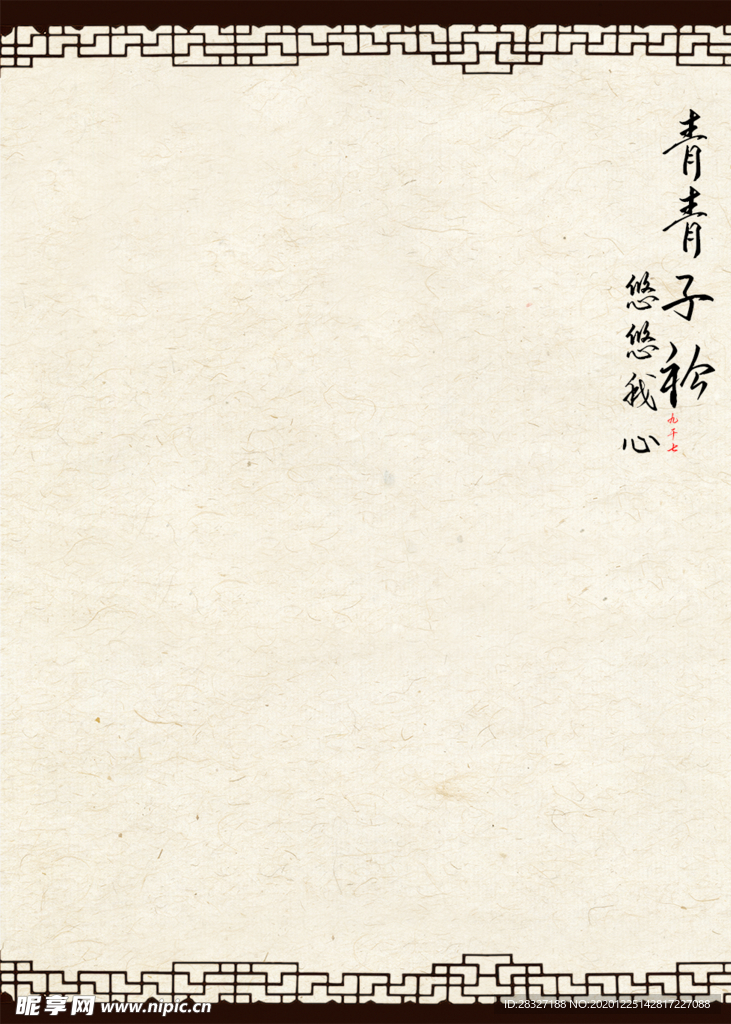 青青子衿
悠悠我心
九千七
昵享网 www.nipic.cn
ID:28327188 NO:20201225142817227088